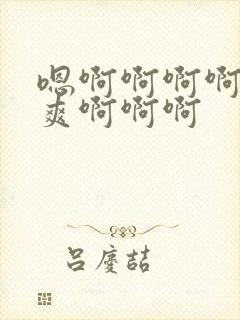 嗯啊啊啊啊
爽啊啊啊
吕慶喆